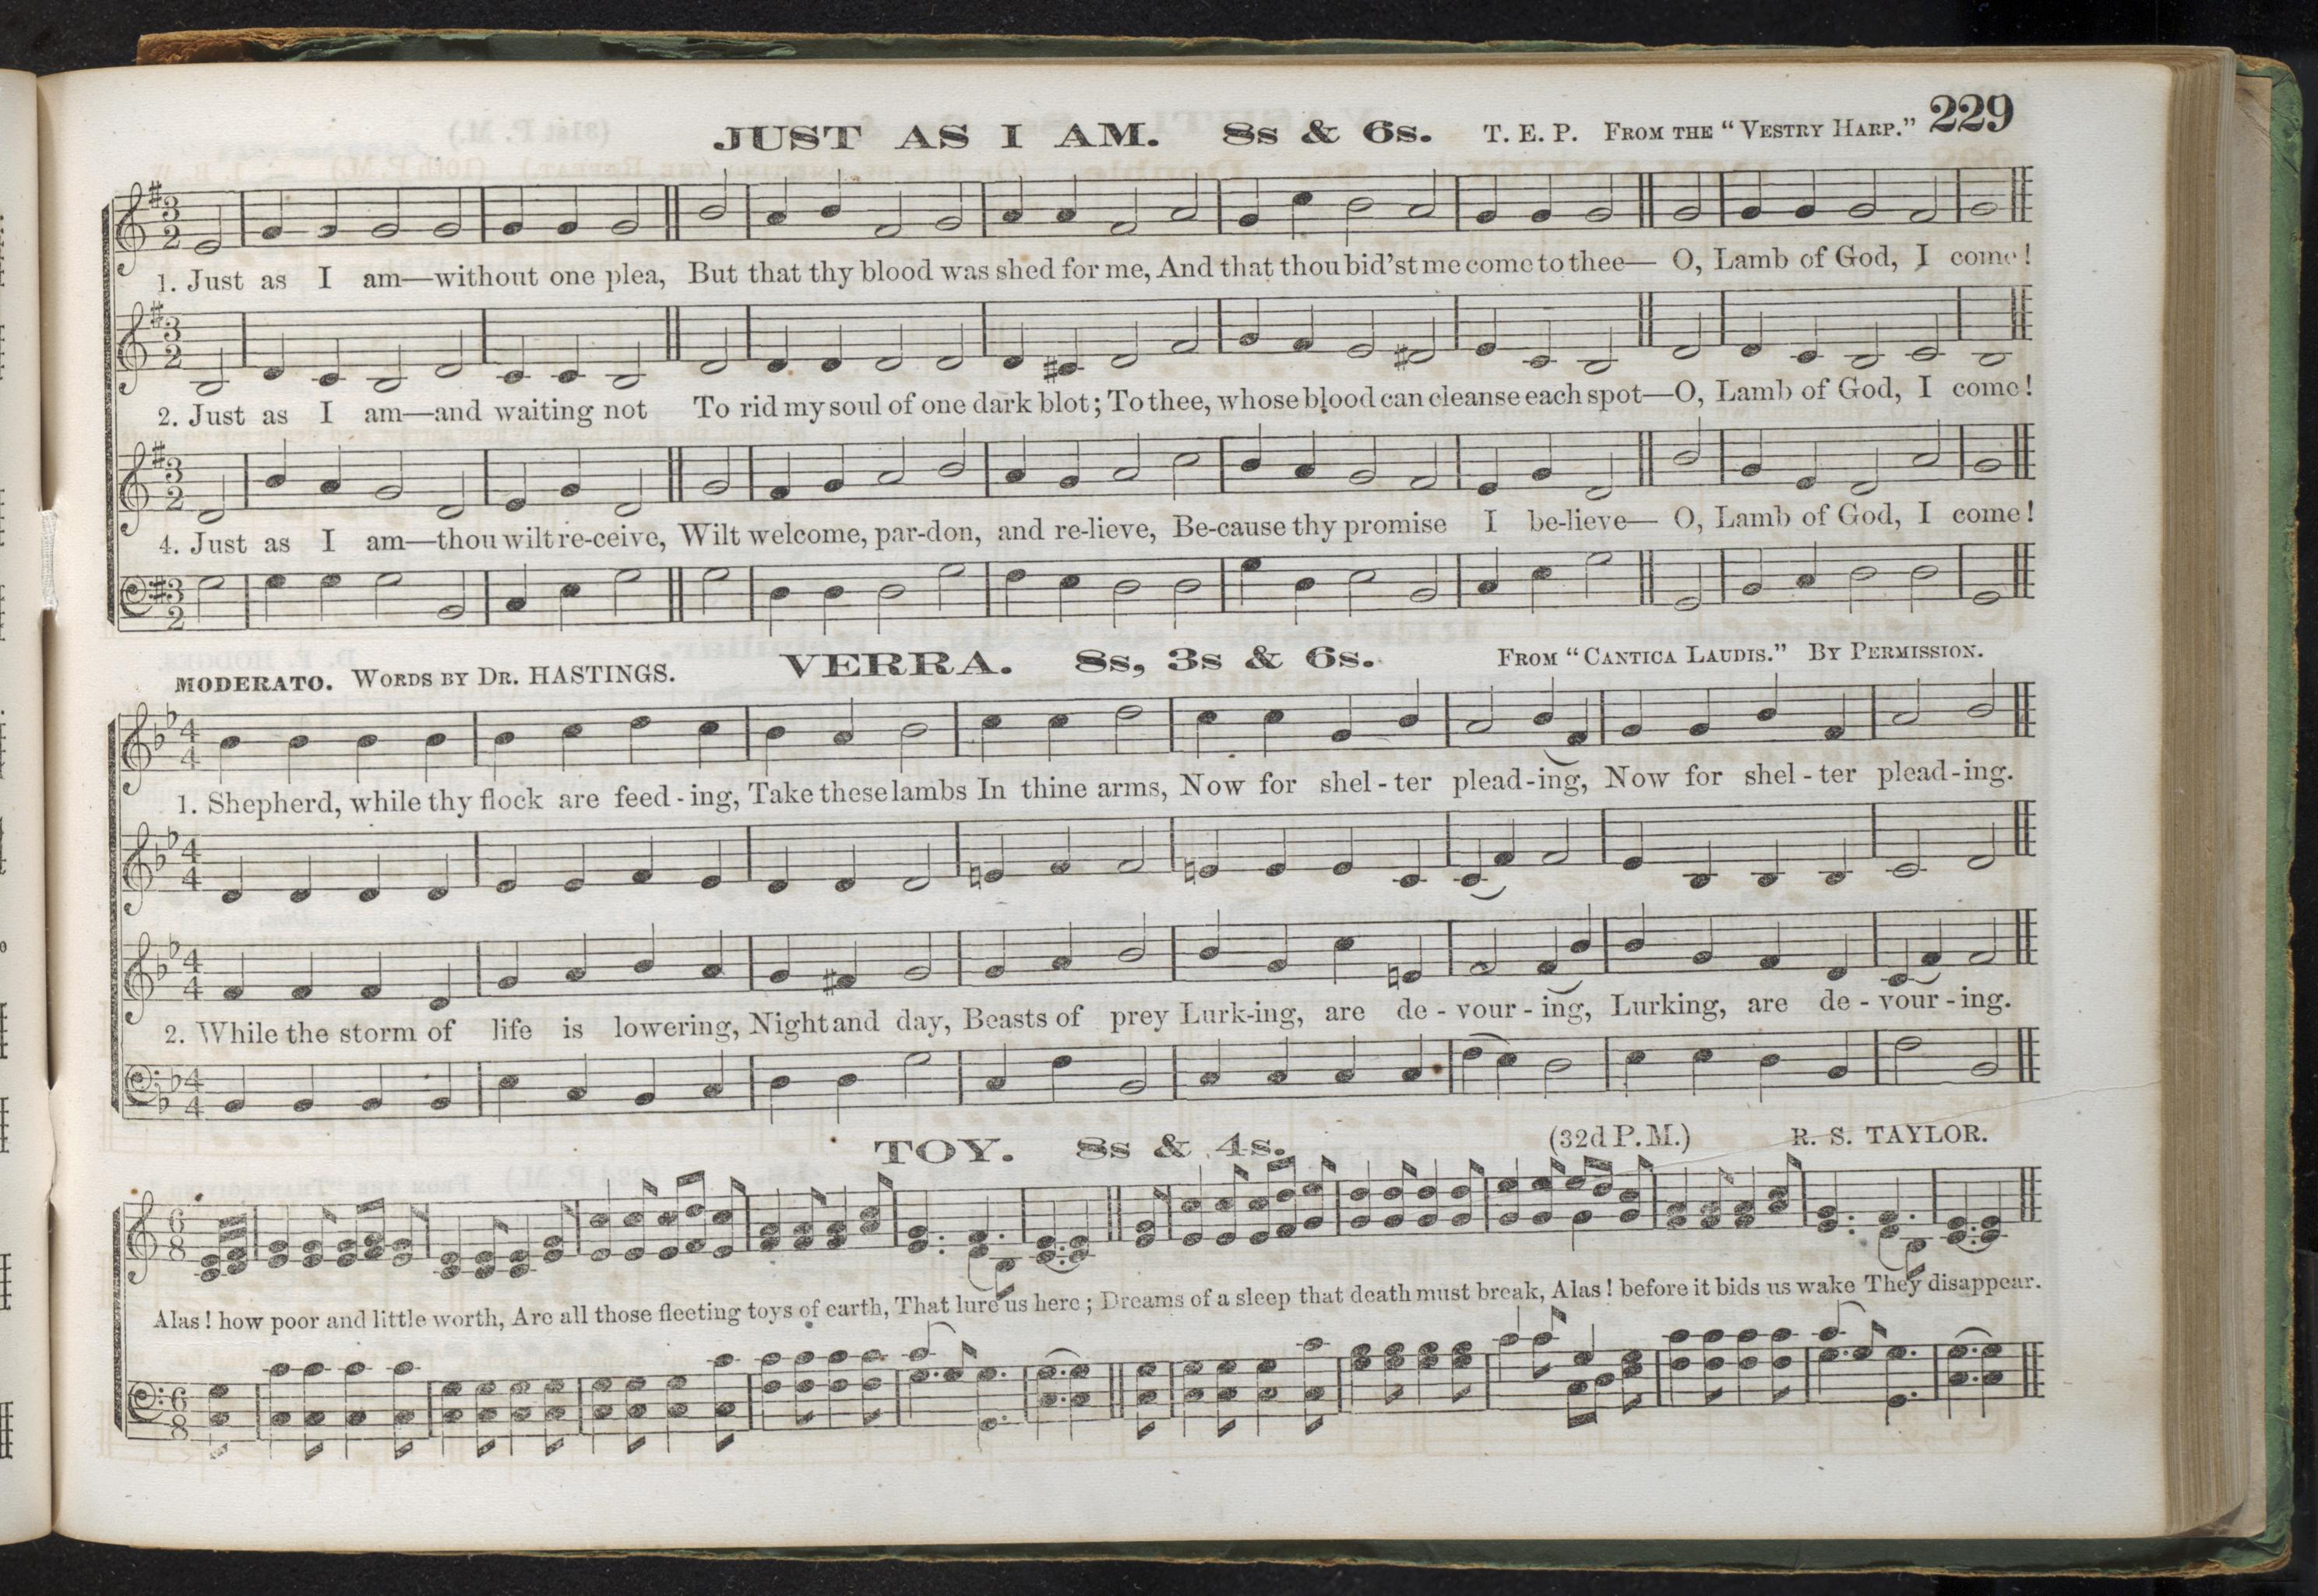 JUST AS I AM. 8s & 6s. T. E. P. FROM THE "VESTRY HARP." 229
3
2
1. Just as I am—without one plea, But that thy blood was shed for me, And that thou bid'st me come to thee— O, Lamb of God, I come!
3
2
2. Just as I am—and waiting not To rid my soul of one dark blot; To thee, whose blood can cleanse each spot—O, Lamb of God, I come!
3
2
4. Just as I am—thou wilt re-ceive, Wilt welcome, par-don, and re-lieve, Be-cause thy promise I be-lieve— O, Lamb of God, I come!
3
2
MODERATO. WORDS BY DR. HASTINGS. VERRA. 8s, 3s & 6s. FROM "CANTICA LAUDIS." BY PERMISSION.
4
4
1. Shepherd, while thy flock are feed - ing, Take these lambs In thine arms, Now for shel - ter plead - ing, Now for shel - ter plead - ing.
4
4
4
4
2. While the storm of life is lowering, Night and day, Beasts of prey Lurk-ing, are de - vour - ing, Lurking, are de - vour - ing.
4
4
TOY. 8s & 4s. (32d P. M.) R. S. TAYLOR.
6
8
Alas! how poor and little worth, Are all those fleeting toys of earth, That lure us here; Dreams of a sleep that death must break, Alas! before it bids us wake They disappear.
6
8